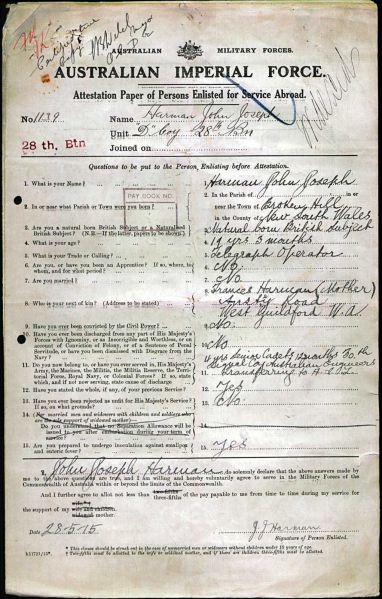 AUSTRALIAN MILITARY FORCES.
AUSTRALIAN IMPERIAL FORCE.
Attestation Paper of Persons Enlisted for Service Abroad.
No. 1139 Name Harman John Joseph
Unit D Coy 28th Btn
28 th. Btn Joined on
Questions to be put to the Person Enlisting before Attestation.
1. What is your Name? 1. Harman John Joseph
PAY BOOK NO.
2. In or near what Parish or Town were you born? 2. In the Parish of in or
near the Town of Broken Hill
in the County of New South Wales
3. Are you a natural born British Subject or a Naturalised British Subject? (N.B.—If the latter, papers to be shown.) 3. Natural born British Subject
4. What is your age? 4. 19 yrs 3 months
5. What is your Trade or Calling? 5. Telegraph Operator
6. Are you, or have you been an Apprentice? If so, where, to whom, and for what period? 6. No
7. Are you married? 7. No
8. Who is your next of kin? (Address to be stated) 8. Frances Harman (Mother)
Road
West Guildford W.A.
9. Have you ever been convicted by the Civil Power? 9. No
10. Have you ever been discharged from any part of His Majesty's Forces with Ignominy, or as Incorrigible and Worthless, or on account of Conviction of Felony, or of a Sentence of Penal Servitude, or have you been dismissed with Disgrace from the Navy? 10. No
11. Do you now belong to, or have you ever served in, His Majesty's Army, the Marines, the Militia, the Militia Reserve, the Territorial Reserve, Royal Navy, or Colonial Forces? If so, state which, and if not now serving, state cause of discharge 11. 4 yrs Senior Cadets 12 months 30th
Signal Coy Australian Engineers
transferring to A.I.F.
12. Have you stated the whole, if any, of your previous Service? 12. Yes
13. Have you ever been rejected as unfit for His Majesty's Service? If so, on what grounds? 13. No
14. (For married men and widowers with children and soldiers who are the sole support of widowed mother)—
Do you understand that no Separation Allowance will be issued to you after embarkation during your term of service? 14.
15. Are you prepared to undergo inoculation against smallpox and enteric fever? 15. Yes
I, John Joseph Harman, do solemnly declare that the above answers made by
me to the above questions are true, and I am willing and hereby voluntarily agree to serve in the Military Forces of the
Commonwealth of Australia within or beyond the limits of the Commonwealth.
And I further agree to allot not less than two-fifths three-fifths of the pay payable to me from time to time during my service for
the support of my wife wife and children. widowed mother.
Date 28-5-15 J J Harman
Signature of Person Enlisted.
* This clause should be struck out in the case of unmarried men or widowers without children under 18 years of age.
† Two-fifths must be allotted to the wife or widowed mother, and if there are children three-fifths must be allotted.